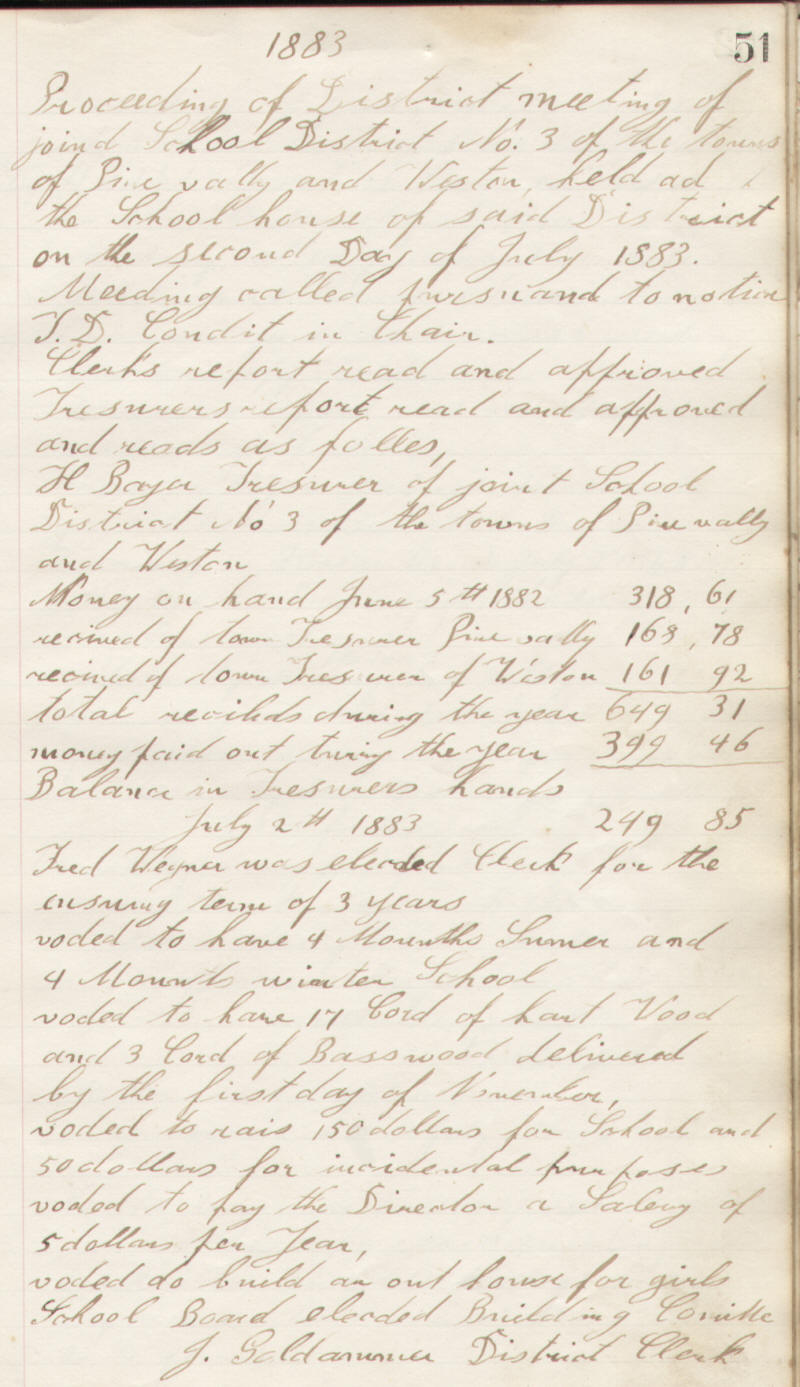 1883
51
Proceeding of District meeting of
joind School District No. 3 of the towns
of Pine vally and Weston, held ad
the School house of said District
on the second Day of July 1883.
Meeding called pursuand to notice
T. D. Condit in Chair.
Clerks report read and approved
Tresurers report read and approved
and reads as folles,
H Boyer Tresurer of joint School
District No 3 of the towns of Pine vally
and Weston
Money on hand June 5th 1882 318, 61
recived of town Tresurer Pine vally 168, 78
recived of town Tresurer of Weston 161 92
total during the year 649 31
money paid out turing the year 399 46
Balance in Tresurers hands
July 2th 1883 249 85
Fred Wegner was elected Clerk for the
ensuing term of 3 years
voded to have 4 Mounths Sumer and
4 Mounts winter School
voded to have 17 Cord of hart Wood
and 3 Cord of Basswood delivered
by the first day of November,
voded to rais 150 dollars for School and
50 dollars for incidental purposes
voded to pay the Director a Salery of
5 dollars per Year,
voded do build an out house for girls
School Board elected Building Comitte
J. Goldammer District Clerk